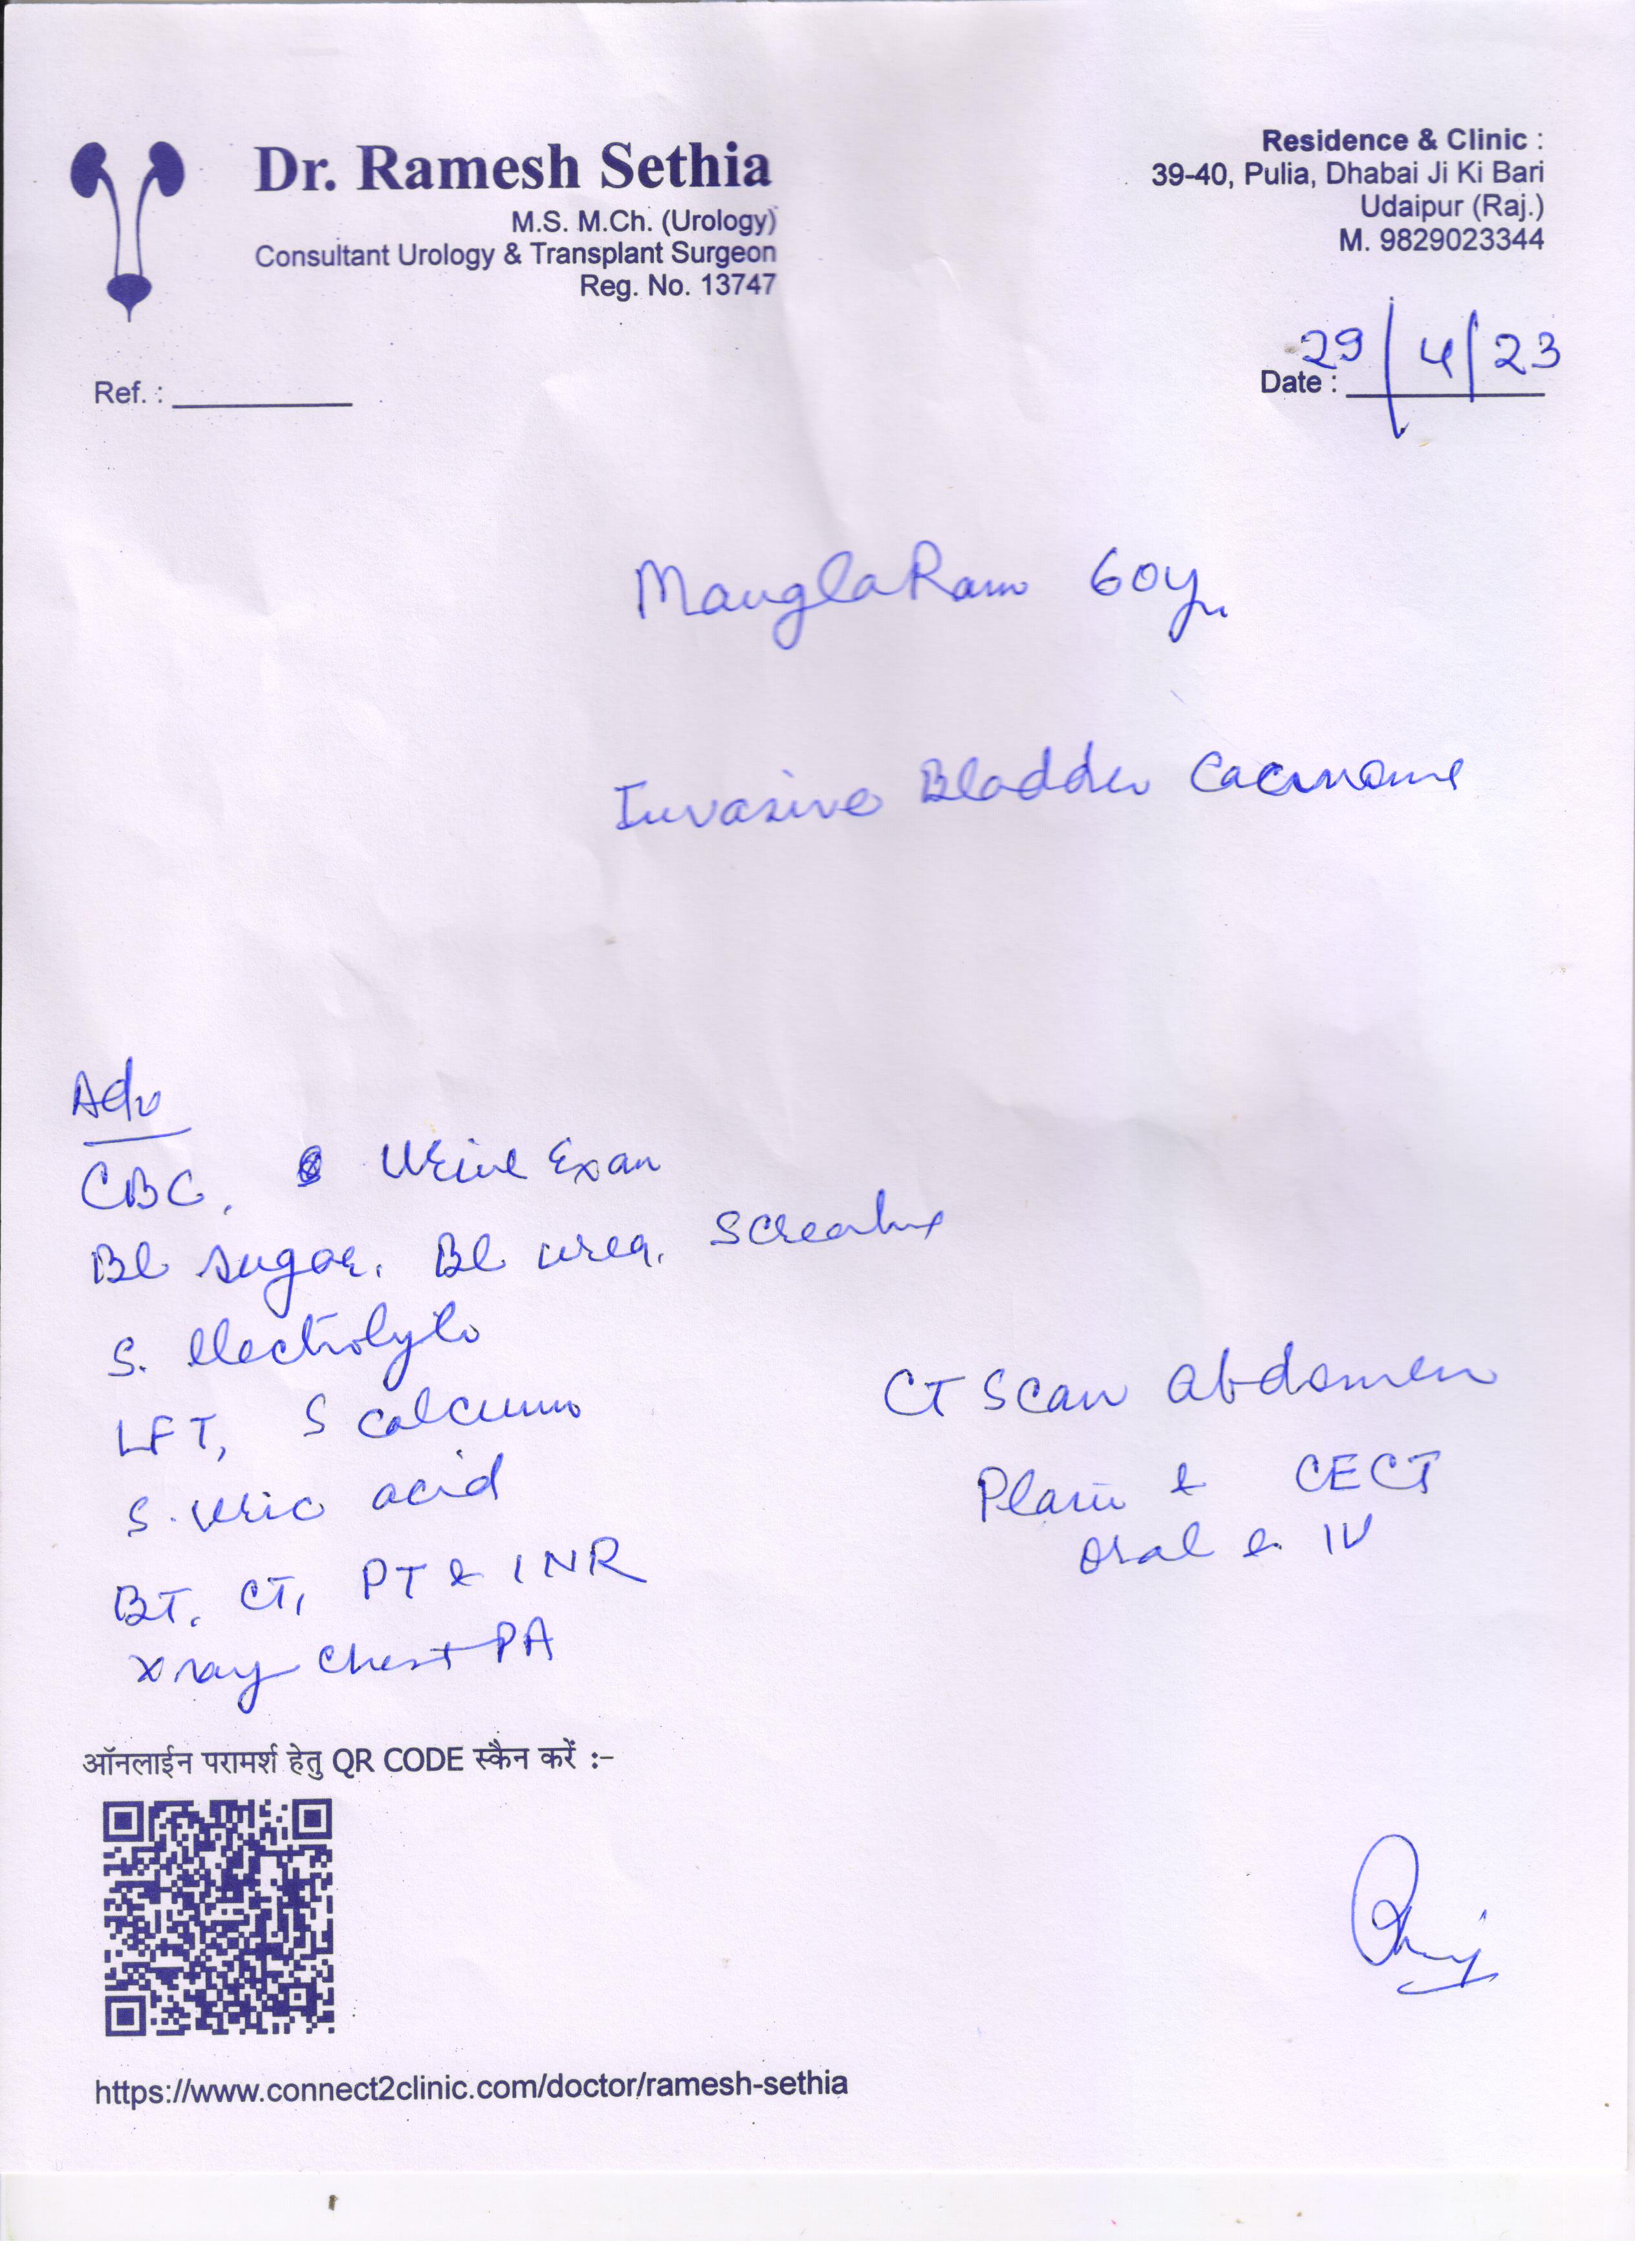 Dr. Ramesh Sethia
M.S. M.Ch. (Urology)
Consultant Urology & Transplant Surgeon
Reg. No. 13747
Residence & Clinic :
39-40, Pulia, Dhabai Ji Ki Bari
Udaipur (Raj.)
M. 9829023344
Ref. :
Date : 29/4/23
Mangla Ram 60y
Invasive Bladder Carcinoma
Adv
CBC, Urine Exam
Bl sugar, Bl urea, S creatinine
S. electrolyte
LFT, S calcium
S. Uric acid
BT, CT, PT & INR
X ray Chest PA
CT Scan abdomen
Plain & CECT
oral & IV
ऑनलाईन परामर्श हेतु QR CODE स्कैन करें :-
https://www.connect2clinic.com/doctor/ramesh-sethia